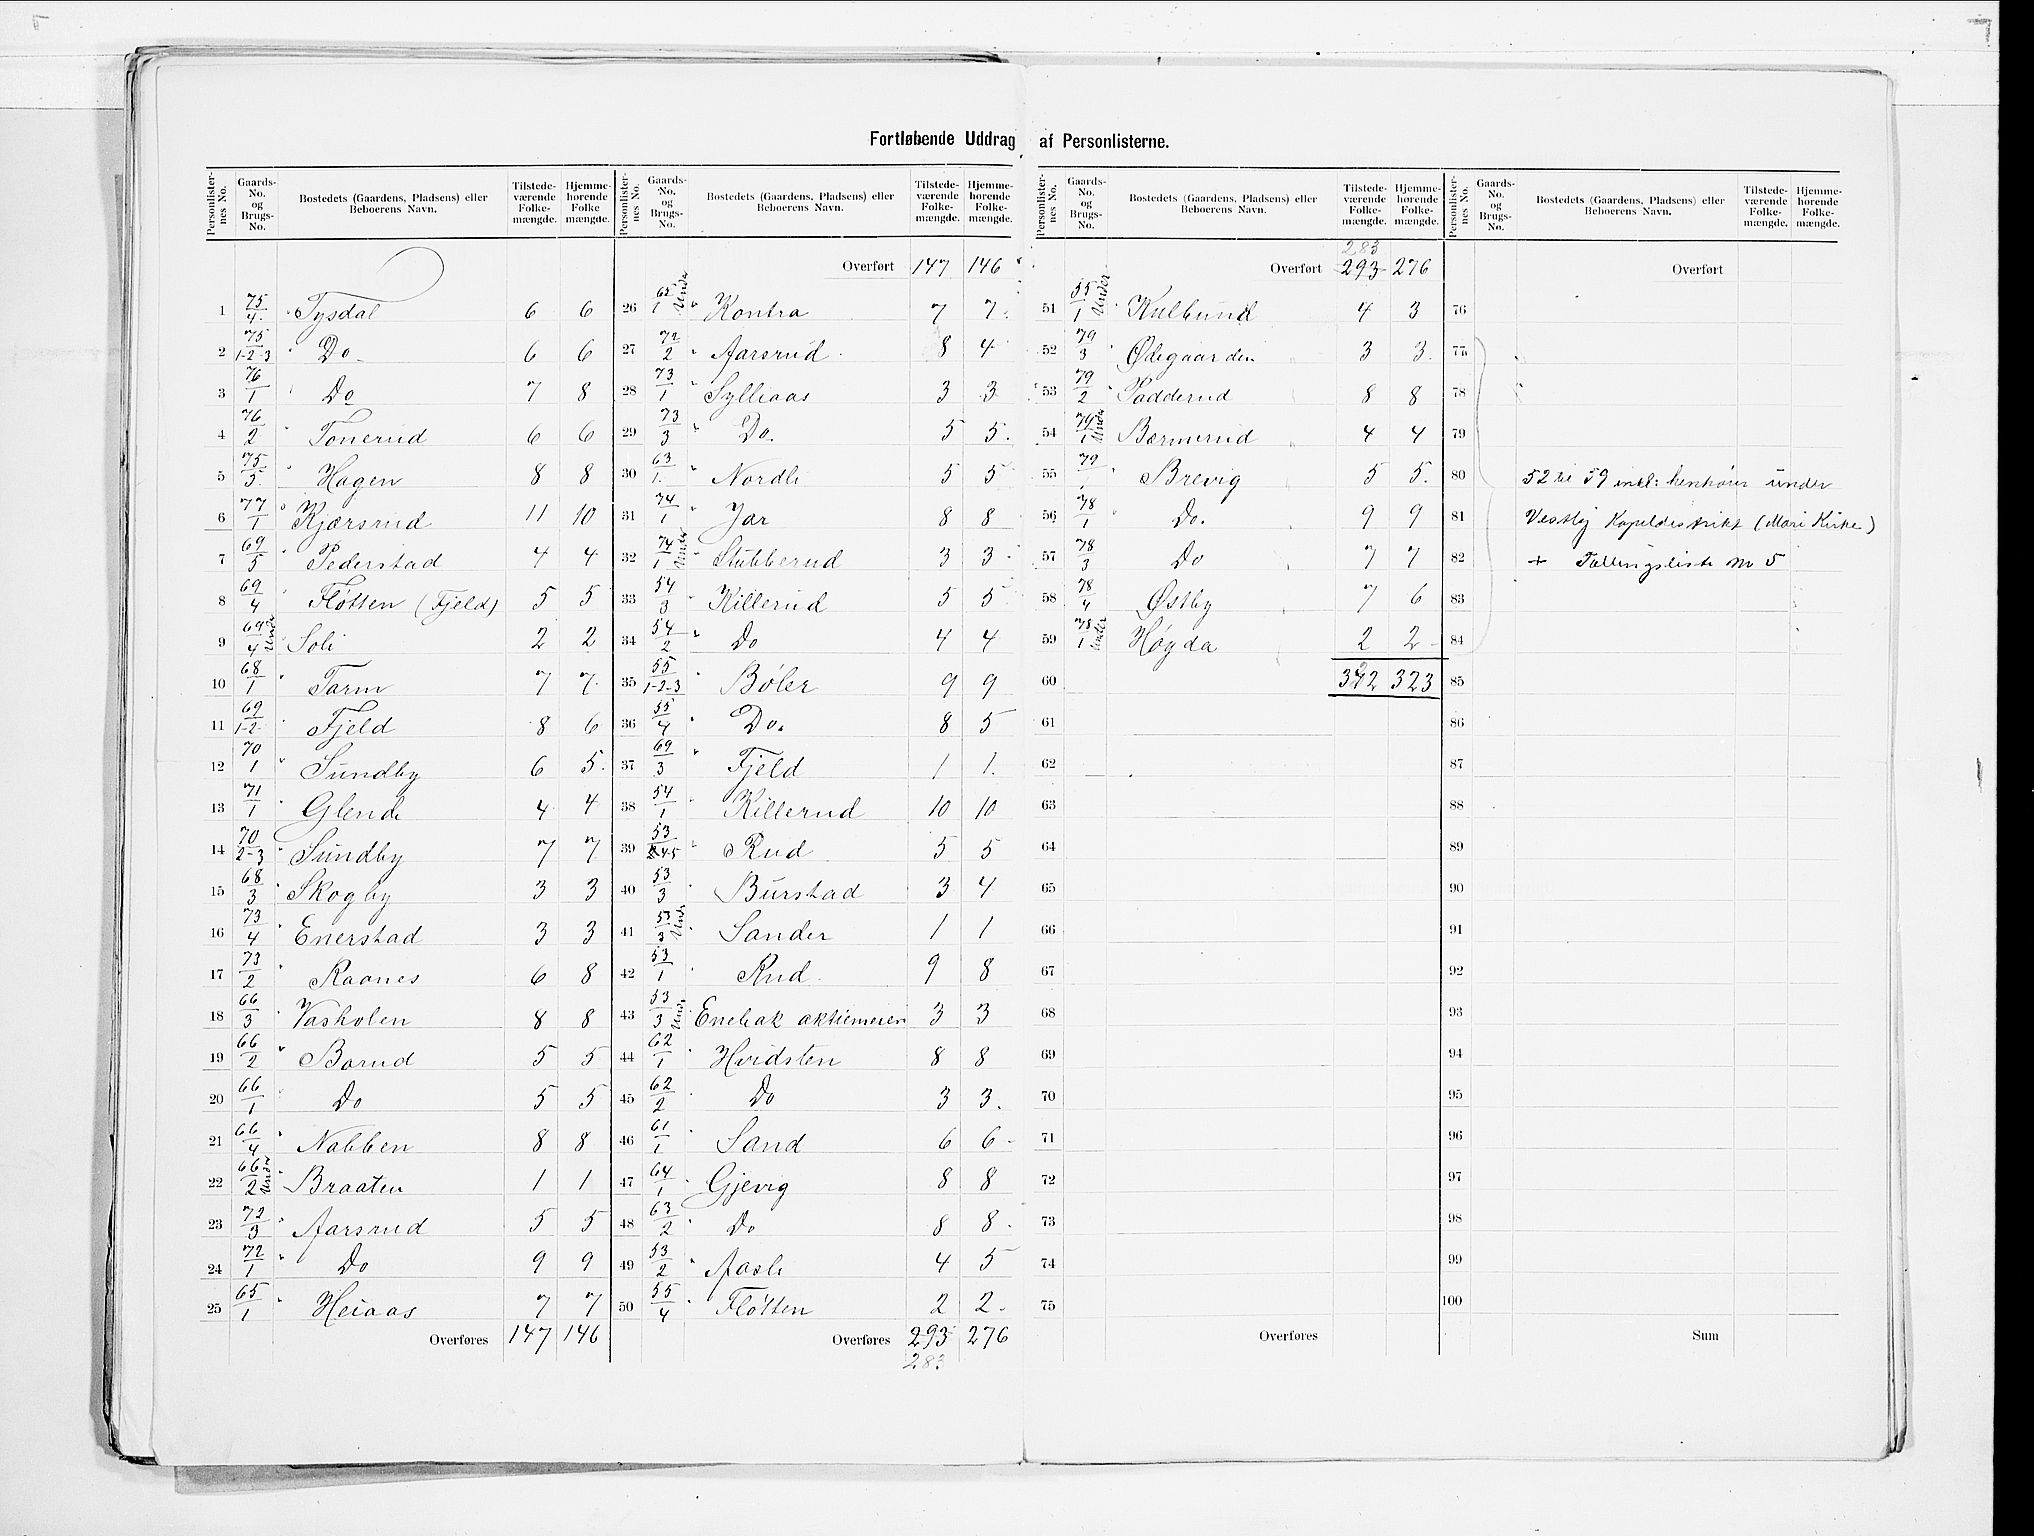 Fortløbende Uddrag af Personlisterne.
Personlister-nes No. | Gaards-No. og Brugs-No. | Bostedets (Gaardens, Pladsens) eller Beboerens Navn. | Tilstede-værende Folke-mængde. | Hjemme-hørende Folke mængde.
1 75/4 Tysdal 6 6
2 75/1-2-3 Do 6 6
3 76/1 Do 7 8
4 76/2 Tonerud 6 6
5 75/5 Hagen 8 8
6 77/1 Kjærsrud 11 10
7 69/5 Pederstad 4 4
8 69/4 Fløtten (Fjeld) 5 5
9 69/4 Under Soli 2 2
10 68/1 Tarm 7 7
11 69/1-2 Fjeld 8 6
12 70/1 Sundby 6 5
13 71/1 Glende 4 4
14 70/2-3 Sundby 7 7
15 68/3 Skogby 3 3
16 73/4 Enerstad 3 3
17 73/2 Raanes 6 8
18 66/3 Vasholen 8 8
19 66/2 Barud 5 5
20 66/1 Do 5 5
21 66/4 Nabben 8 8
22 66/2 Under Braaten 1 1
23 72/3 Aarsrud 5 5
24 72/1 Do 9 9
25 65/1 Heiaas 7 7
Overføres 147 146
Personlister-nes No. | Gaards-No. og Brugs-No. | Bostedets (Gaardens, Pladsens) eller Beboerens Navn. | Tilstede-værende Folke-mængde. | Hjemme-hørende Folke-mængde.
Overført 147 146
26 62/1 Under Kontra 7 7
27 72/2 Aarsrud 8 4
28 73/1 Sylliaas 3 3
29 73/3 Do. 5 5
30 63/1 Nordli 5 5
31 74/1 Jar 8 8
32 74/1 Under Stubberud 3 3
33 54/3 Killerud 5 5
34 54/2 Do 4 4
35 55/1-2-3 Bøler 9 9
36 55/4 Do. 8 5
37 69/3 Fjeld 1 1
38 54/1 Killerud 10 10
39 53/2 4-5 Rud 5 5
40 53/3 Burstad 3 4
41 53/3 Under Sander 1 1
42 53/1 Rud 9 8
43 53/3 Under Enebak aktiemeieri 3 3
44 62/1 Hvidsten 8 8
45 62/2 Do 3 3
46 61/1 Sand 6 6
47 64/1 Gjevig 8 8
48 63/2 Do 8 8
49 53/2 Aasli 4 5
50 55/4 Fløtten 2 2
Overføres 293 276
283
Personlister-nes No. | Gaards-No. og Brugs-No. | Bostedets (Gaardens, Pladsens) eller Beboerens Navn. | Tilstede-værende Folke-mængde. | Hjemme-hørende Folke-mængde.
283
Overført 293 276
51 55/1 Under Kulbund 4 3
52 79/3 Ødegaarden 3 3
53 79/2 Padderud 8 8
54 79/1 Under Bærmerud 4 4
55 79/1 Brevig 5 5
56 78/1 Do. 9 9
57 78/3 Do 7 7
58 78/4 Østby 7 6
59 78/1 Under Høgda 2 2
60 323
61
62
63
64
65
66
67
68
69
70
71
72
73
74
75
Overføres
Personlister-nes No. | Gaards-No. og Brugs-No. | Bostedets (Gaardens, Pladsens) eller Beboerens Navn. | Tilstede-værende Folke-mængde. | Hjemme-hørende Folke-mængde.
Overført
76
77
78
79
80 52 til 59 incl: henhører under
81 Vestby Kapeldistrikt (Mari Kirke)
82 + Tællingsliste No 5
83
84
85
86
87
88
89
90
91
92
93
94
95
96
97
98
99
100
Sum